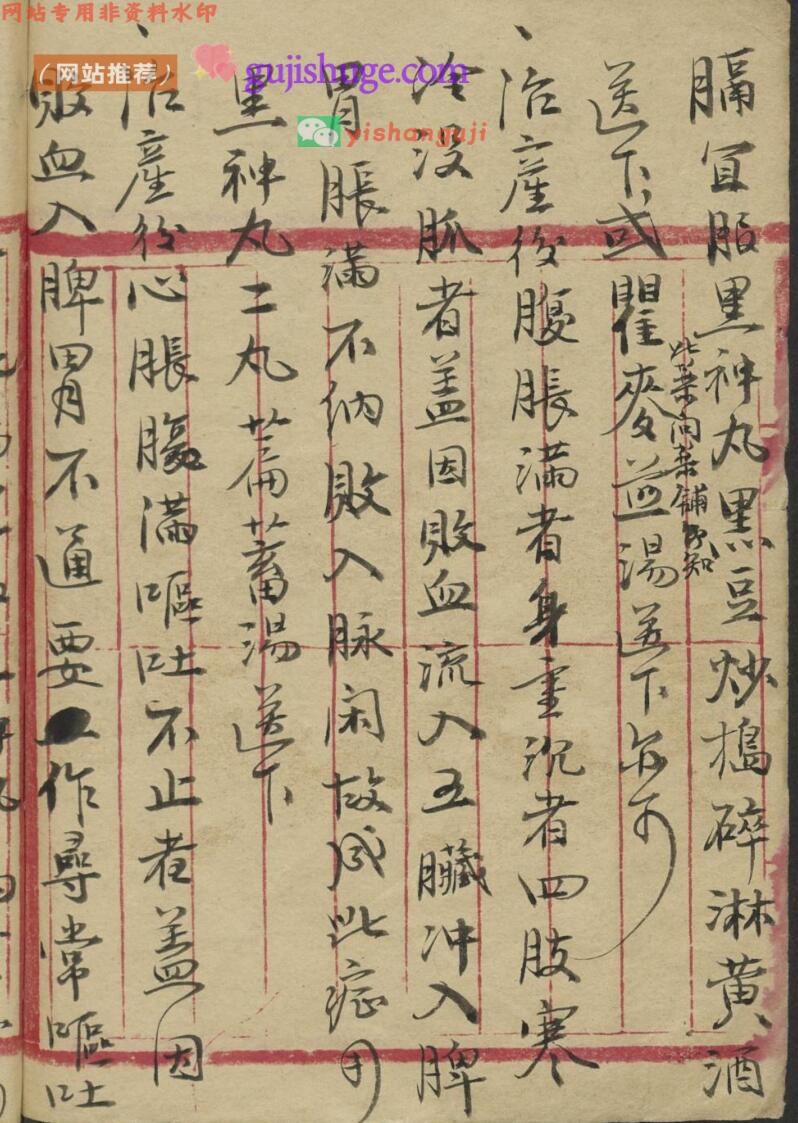 网站专用非资料水印
（网站推荐）
gujishuge.com
yishanguji
膈宜服黑神丸黑豆炒搗碎淋黄酒
送下或瞿麥煎湯送下亦可
此藥向藥舖民知
、治產後腹脹滿者身重沉者四肢寒
冷没脈者盖因败血流入五臟冲入脾
胃脹滿不纳败入脉闲故成此症用
黑神丸二丸萹蓄湯送下
、治產後心脹腸滿嘔吐不止者盖因
败血入脾胃不通要作尋常嘔吐